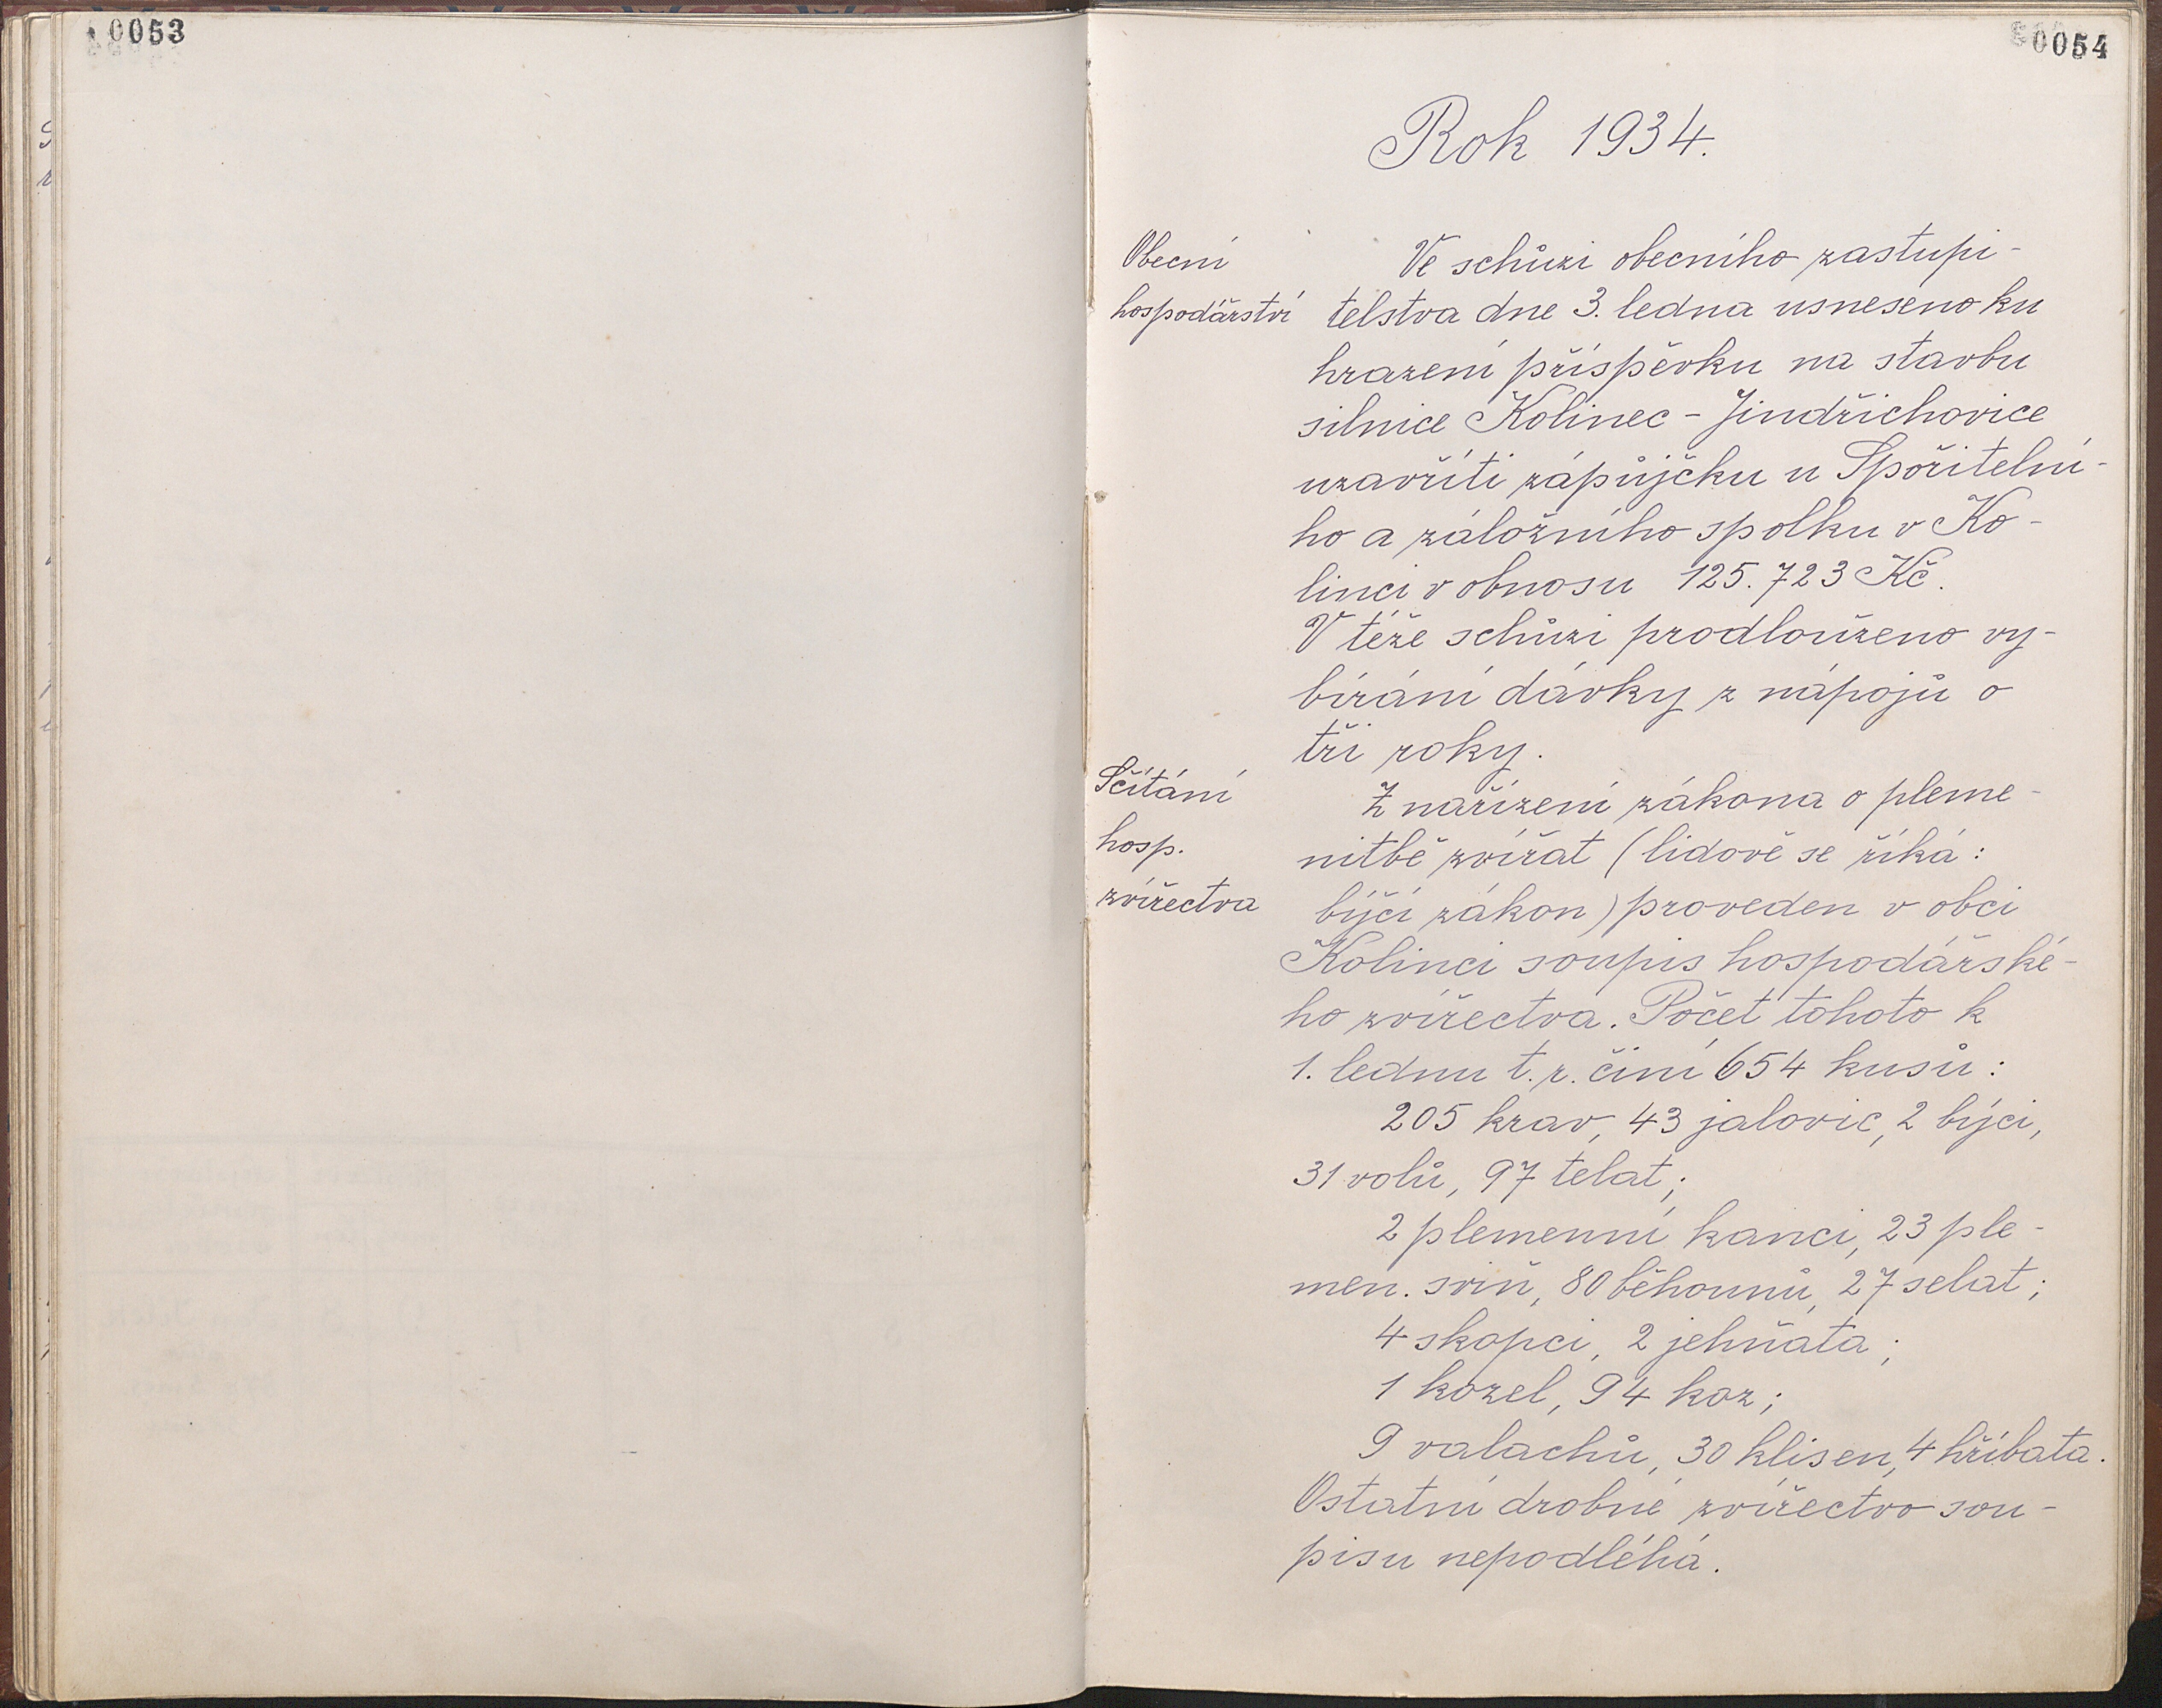 0053
0054
Rok 1934.
Obecní
hospodářství
Ve schůzi obecního zastupi-
telstva dne 3. ledna usneseno ku
hrazení příspěvku na stavbu
silnice Kolinec - Jindřichovice
uzavříti zápůjčku u Spořitelní-
ho a záložního spolku v Ko-
linci v obnosu 125.723 Kč.
V téže schůzi prodlouženo vy-
bírání dávky z nápojů o
tři roky.
Sčítání
hosp.
zvířectva
Z nařízení zákona o pleme-
nitbě zvířat (lidově se říká:
býčí zákon) proveden v obci
Kolinci soupis hospodářské-
ho zvířectva. Počet tohoto k
1. lednu t.r. činí 654 kusů:
205 krav, 43 jalovic, 2 býci,
31 volů, 97 telat;
2 plemenní kanci, 23 ple-
men. sviň, 80 běhounů, 27 selat;
4 skopci, 2 jehňata;
1 kozel, 94 koz;
9 valachů, 30 klisen, 4 hříbata.
Ostatní drobné zvířectvo sou-
pisu nepodléhá.